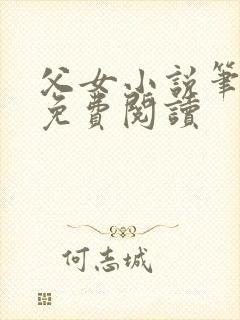 父女小说筆
免費閱讀
何志城